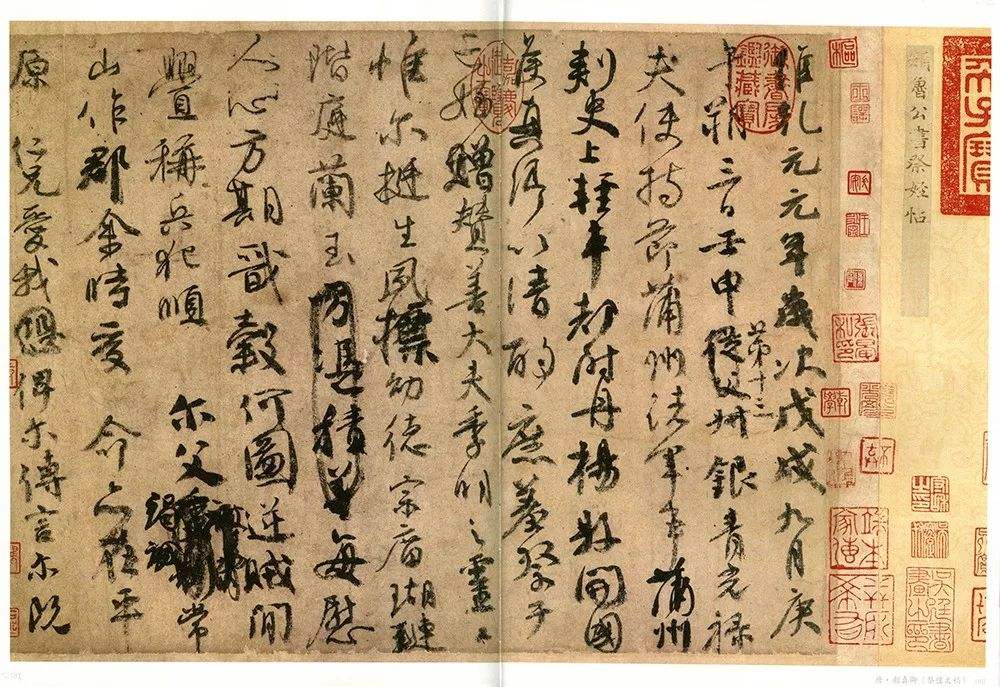 魯公書祭姪帖
維乾元元年歲次戊戌九月庚
午朔三日壬申第十三從父叔銀青光祿
夫使持節蒲州諸軍事蒲州
刺史上輕車都尉丹楊縣開國
侯真卿以清酌庶羞祭于
亡姪贈贊善大夫季明之靈曰
惟爾挺生夙標幼德宗廟瑚璉
階庭蘭玉方憑積善每慰
人心方期戩穀何圖逆賊閒
釁稱兵犯順爾父竭誠常
山作郡余時受命亦在平
原仁兄愛我恐俾爾傳言爾既